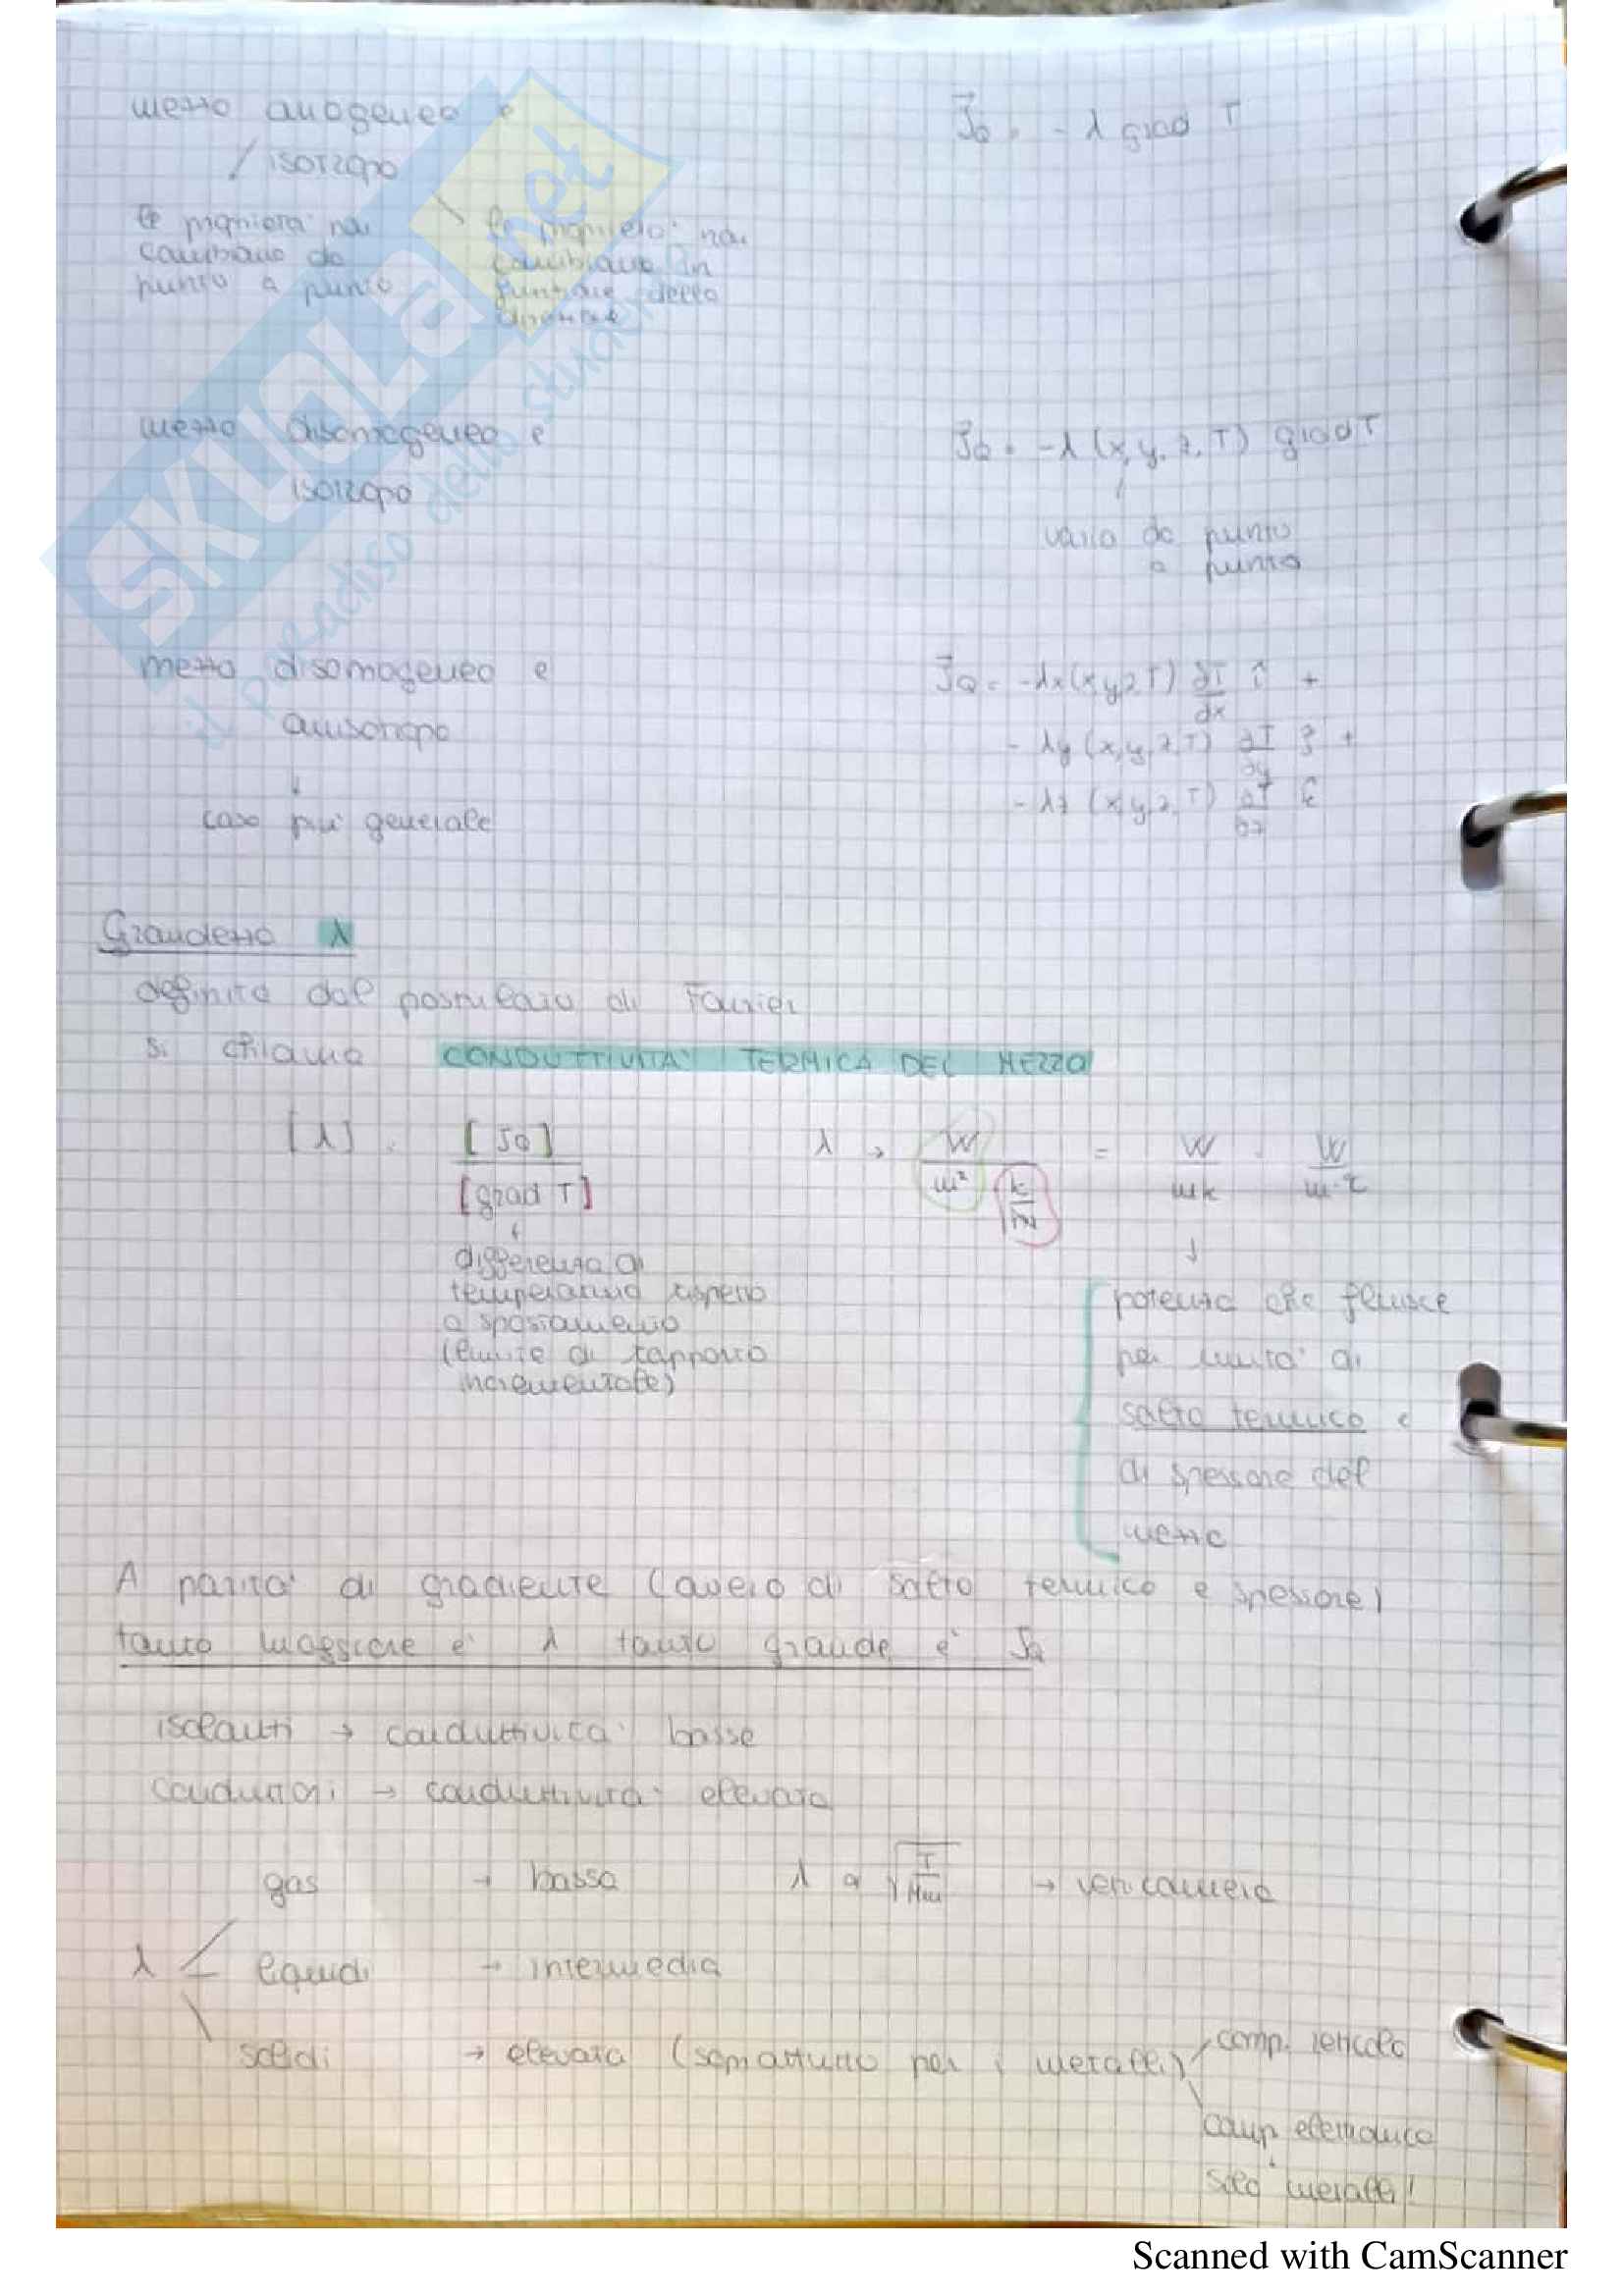 mezzo omogeneo e
isotropo
J⃗Q = - λ grad T
le proprietà non
cambiano da
punto a punto
le proprietà non
cambiano in
funzione della
direzione
mezzo disomogeneo e
isotropo
J⃗Q = -λ (x, y, z, T) grad T
varia da punto
a punto
mezzo disomogeneo e
anisotropo
↓
caso più generale
J⃗Q = -λx (x,y,z,T) ∂T/∂x î +
- λy (x,y,z,T) ∂T/∂y ĵ +
- λz (x,y,z,T) ∂T/∂z k̂
Grandezza λ
definita dal postulato di Fourier
si chiama CONDUTTIVITA' TERMICA DEL MEZZO
[λ] = [JQ] / [grad T]
λ → W/m² / K/m = W/mK = W/m°C
↓
differenza di
temperatura rispetto
a spostamento
(limite di rapporto
incrementale)
↓
potenza che fluisce
per unità di
salto termico e
di spessore del
mezzo
A parità di gradiente (ovvero di salto termico e spessore)
tanto maggiore è λ tanto grande è JQ
isolanti → conduttività basse
conduttori → conduttività elevata
gas → bassa λ α √T/Mm →
λ
liquidi → intermedia
solidi → elevata (soprattutto per i metalli)
comp. reticolo
comp elettronico
solo metalli!
SKUOLA.net
il paradiso dello studente
Scanned with CamScanner